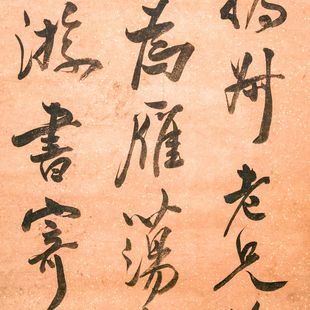 楊州老兄
為雁蕩
游書寄